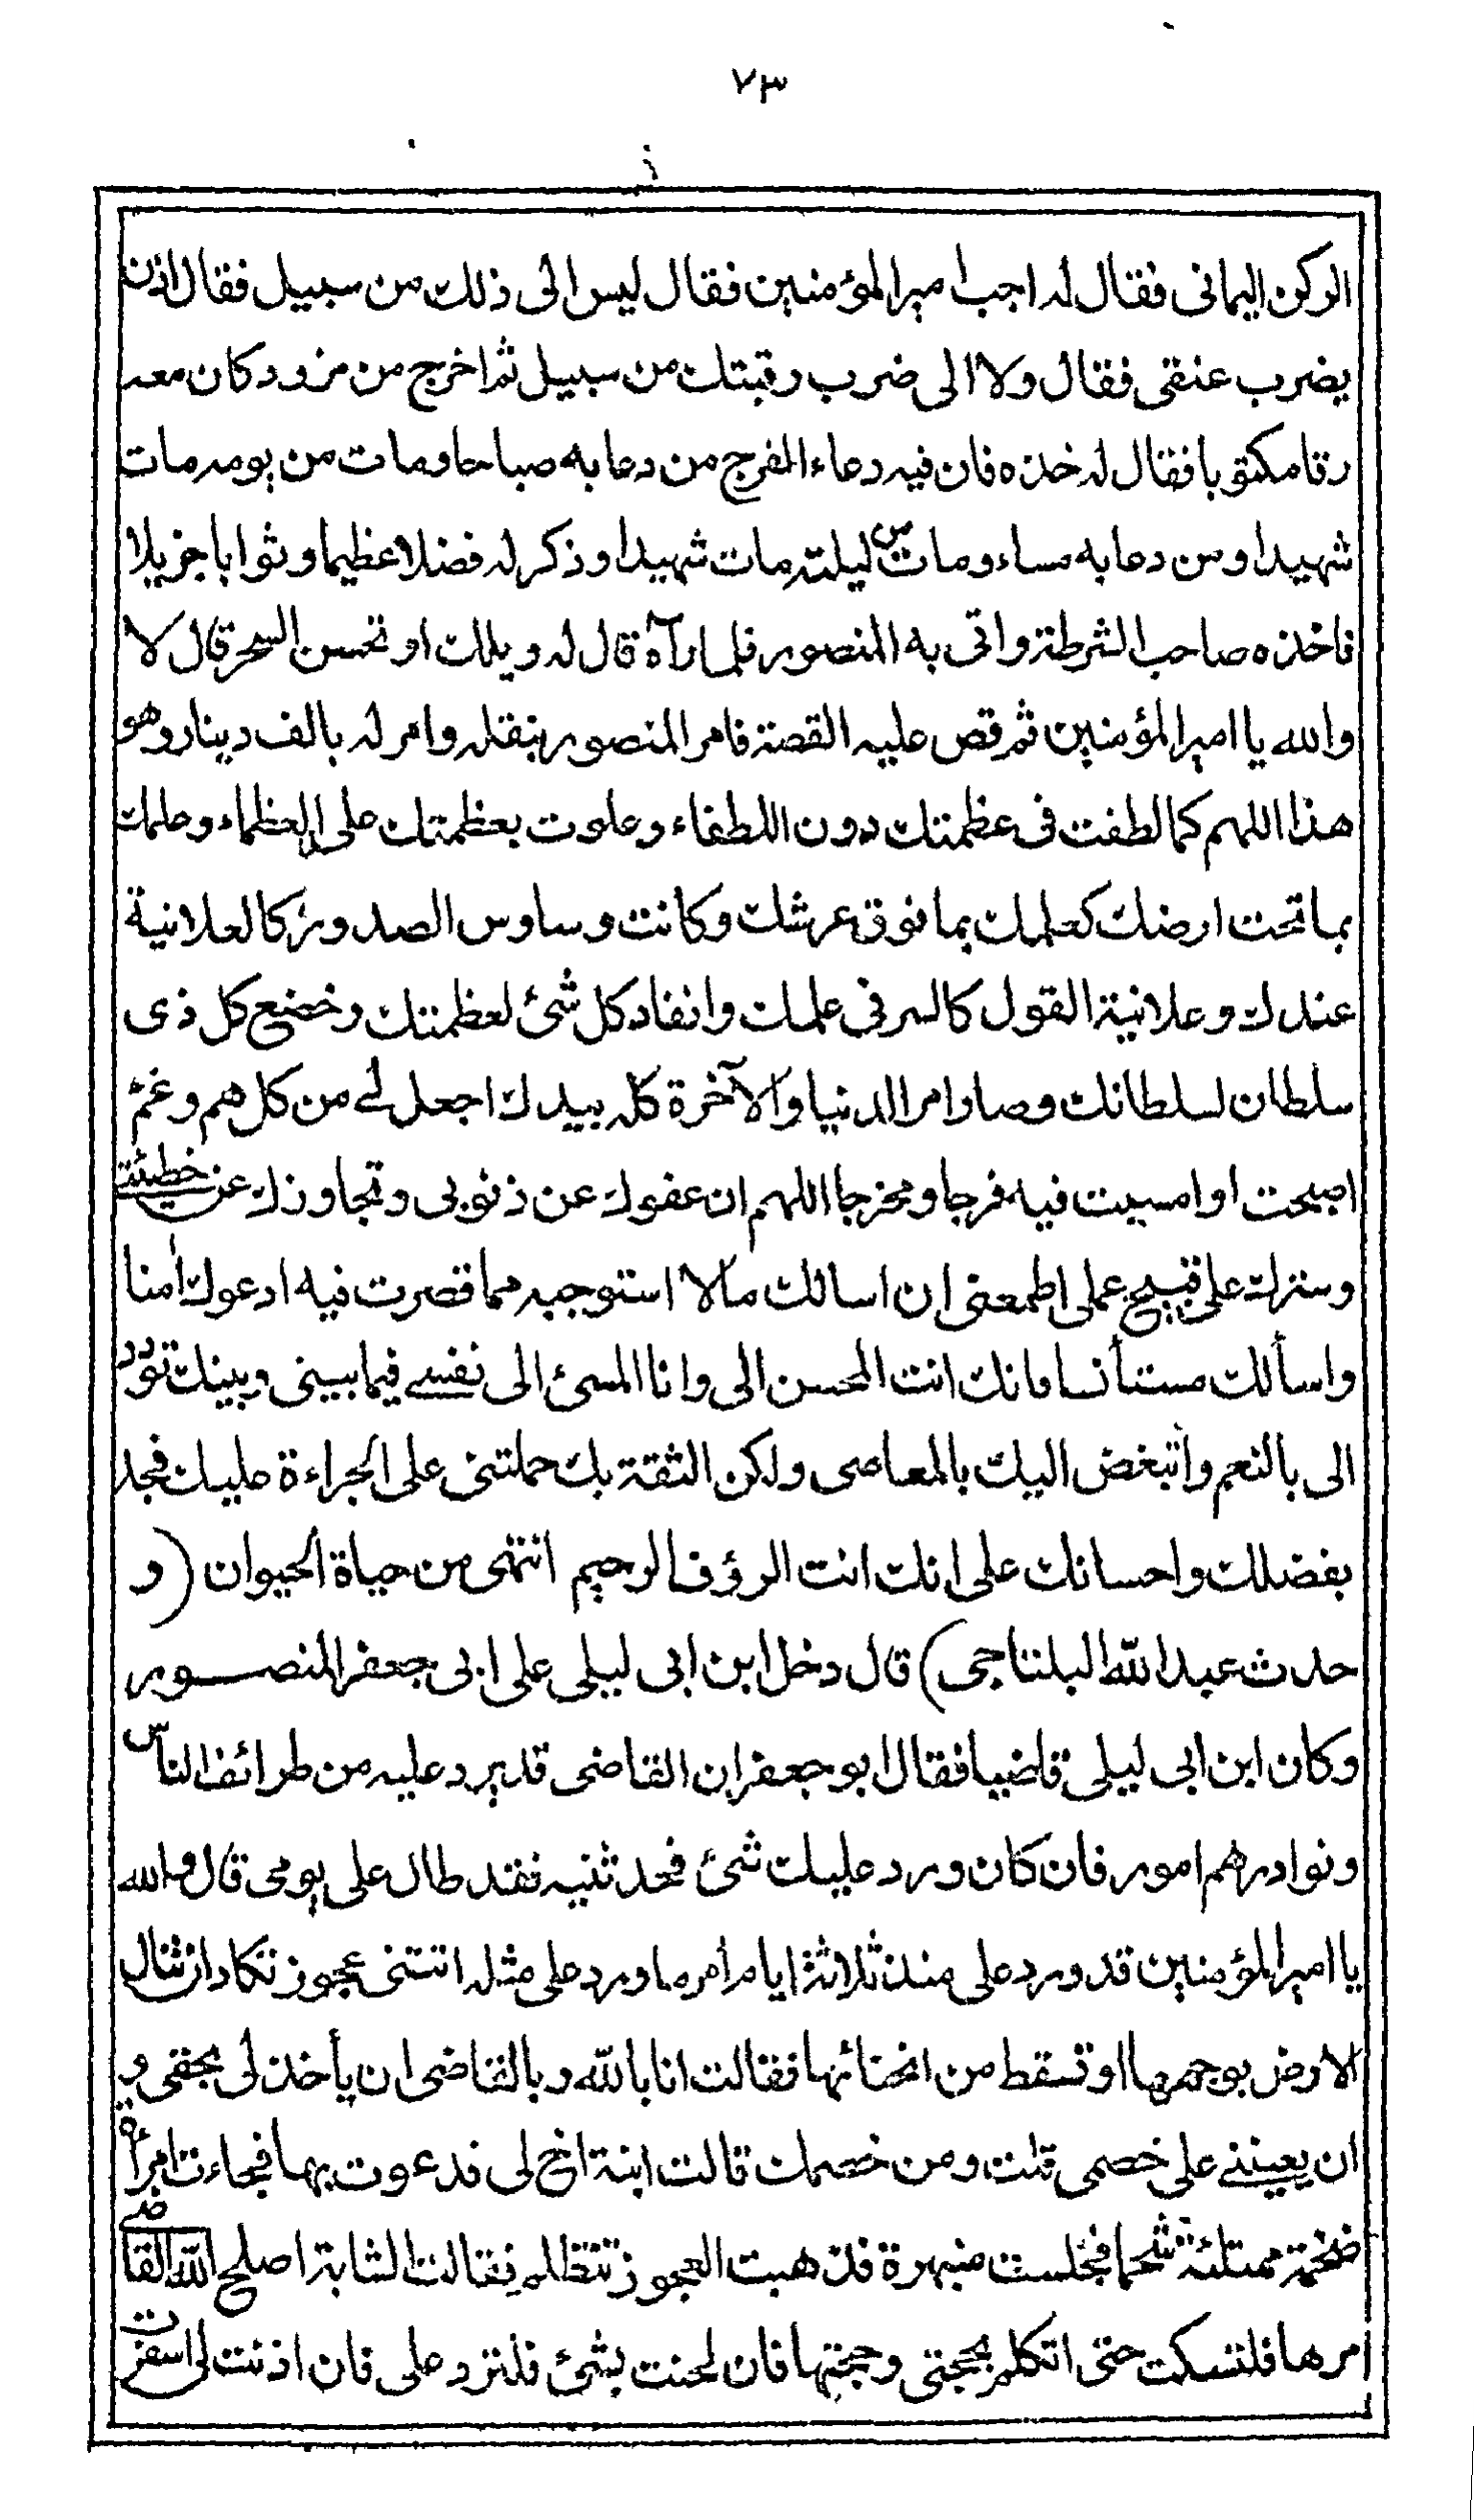 ٧٣
الركن اليمانى فقال له اجب امير المؤمنين فقال ليس الى ذلك من سبيل فقال اذن
يضرب عنقى فقال ولا الى ضرب رقبتك من سبيل ثم اخرج من مزود كان معه
رقا مكتوبا فقال له خذه فان فيه دعاء الفرج من دعا به صباحا ومات من يومه مات
شهيدا ومن دعا به مساء ومات من ليلته مات شهيدا وذكر له فضلا عظيما وثوابا جزيلا
فاخذه صاحب الشرطة واتى به المنصور فلما رآه قال له ويلك او تحسن السحر قال لا
والله يا امير المؤمنين ثم قص عليه القصة فامر المنصور بنقله وامر له بالف دينار وهو
هذا اللهم كما لطفت فى عظمتك دون اللطفاء وعلوت بعظمتك على العظماء وعلمك
بما تحت ارضك كعلمك بما فوق عرشك وكانت وساوس الصدور كالعلانية
عندك وعلانية القول كالسر فى علمك وانقاد كل شئ لعظمتك وخضع كل ذى
سلطان لسلطانك وصار امر الدنيا والآخرة كله بيدك اجعل لى من كل هم وغم
اصبحت او امسيت فيه فرجا ومخرجا اللهم ان عفوك عن ذنوبى وتجاوزك عن خطيئتى
وسترك على قبيح عملى اطمعنى ان اسالك مالا استوجبه مما قصرت فيه ادعوك اٰمنا
واسألك مستأنسا فانك انت المحسن الى وانا المسئ الى نفسى فيما بينى وبينك تودد
الى بالنعم واتبغض اليك بالمعاصى ولكن الثقة بك حملتنى على الجراءة عليك فجد
بفضلك واحسانك على انك انت الرؤف الرحيم انتهى من حياة الحيوان (و
حدث عبد الله البلتاجى) قال دخل ابن ابى ليلى على ابى جعفر المنصور
وكان ابن ابى ليلى قاضيا فقال ابو جعفر ان القاضى قد يرد عليه من طرائف الناس
ونوادرهم امور فان كان ورد عليك شئ فحدثنيه فقد طال على يومى قال والله
يا امير المؤمنين قد ورد على منذ ثلاثة ايام امر ما ورد على مثله اتتنى عجوز تكاد ان تنال
الارض بوجهها او تسقط من انحنائها فقالت انا بالله وبالقاضى ان يأخذ لى بحقى و
ان يعيننى على خصمى قلت ومن خصمك قالت ابنة اخ لى فدعوت بها فجاءت امرأة
ضخمة ممتلئة شحما فجلست منبهرة فذهبت العجوز تتظلم فقالت الشابة اصلح الله القاضى
امرها فلتسكت حتى اتكلم بحجتى وحجتها فان لحنت بشئ فلترد على فان اذنت لى اسفرت